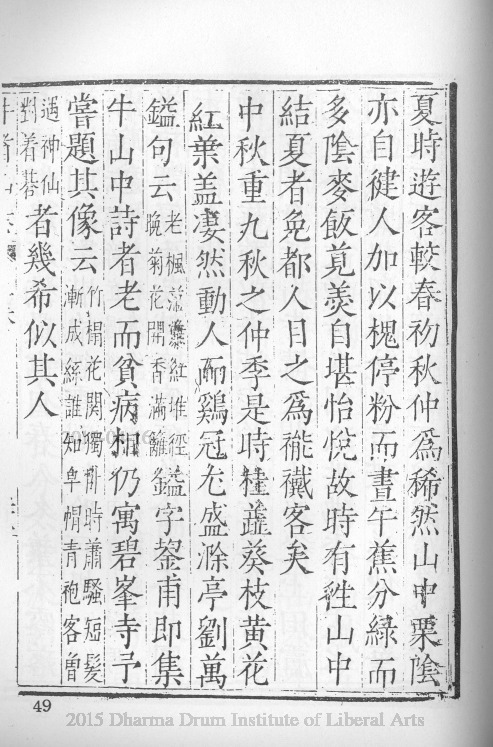 夏時遊客較春初秋仲為稀然山中栗陰
亦自健人加以槐停粉而晝午蕉分綠而
多陰麥飯莧羹自堪怡悅故時有徃山中
結夏者免都人目之為襶客矣
中秋重九秋之仲季是時桂蘸葵枝黄花
紅葉盖凄然動人而鷄冠尤盛滁亭劉萬
鎰句云老楓落葉紅堆徑晚菊花開香滿籬鎰字鋆甫即集
牛山中詩者老而貧病相仍寓碧峯寺予
嘗題其像云竹榻花関獨卧時蕭騷短髮漸成絲誰知皁帽青袍客曾
遇神仙對着碁者幾希似其人
49
2015 Dharma Drum Institute of Liberal Arts